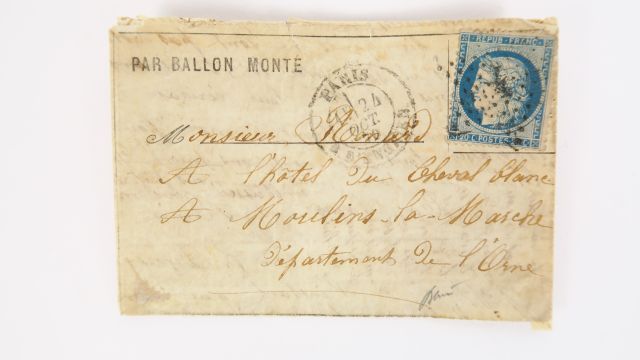 REPUB. FRANC.
PAR BALLON MONTÉ
PARIS
24
OCT
Monsieur
A l'hôtel du Cheval blanc
A Moulins-la-Marche
Département de l'Orne
20 C POSTES 20 C